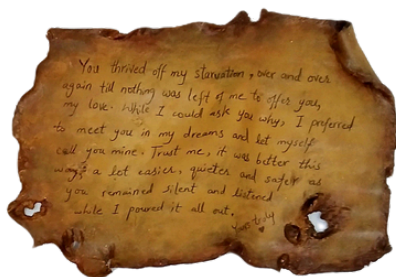 You thrived off my starvation, over and over
again till nothing was left of me to offer you,
my love. While I could ask you why, I preferred
to meet you in my dreams and let myself
call you mine. Trust me, it was better this
way, a lot easier, quieter and safer as
you remained silent and listened
while I poured it all out.
Yours truly